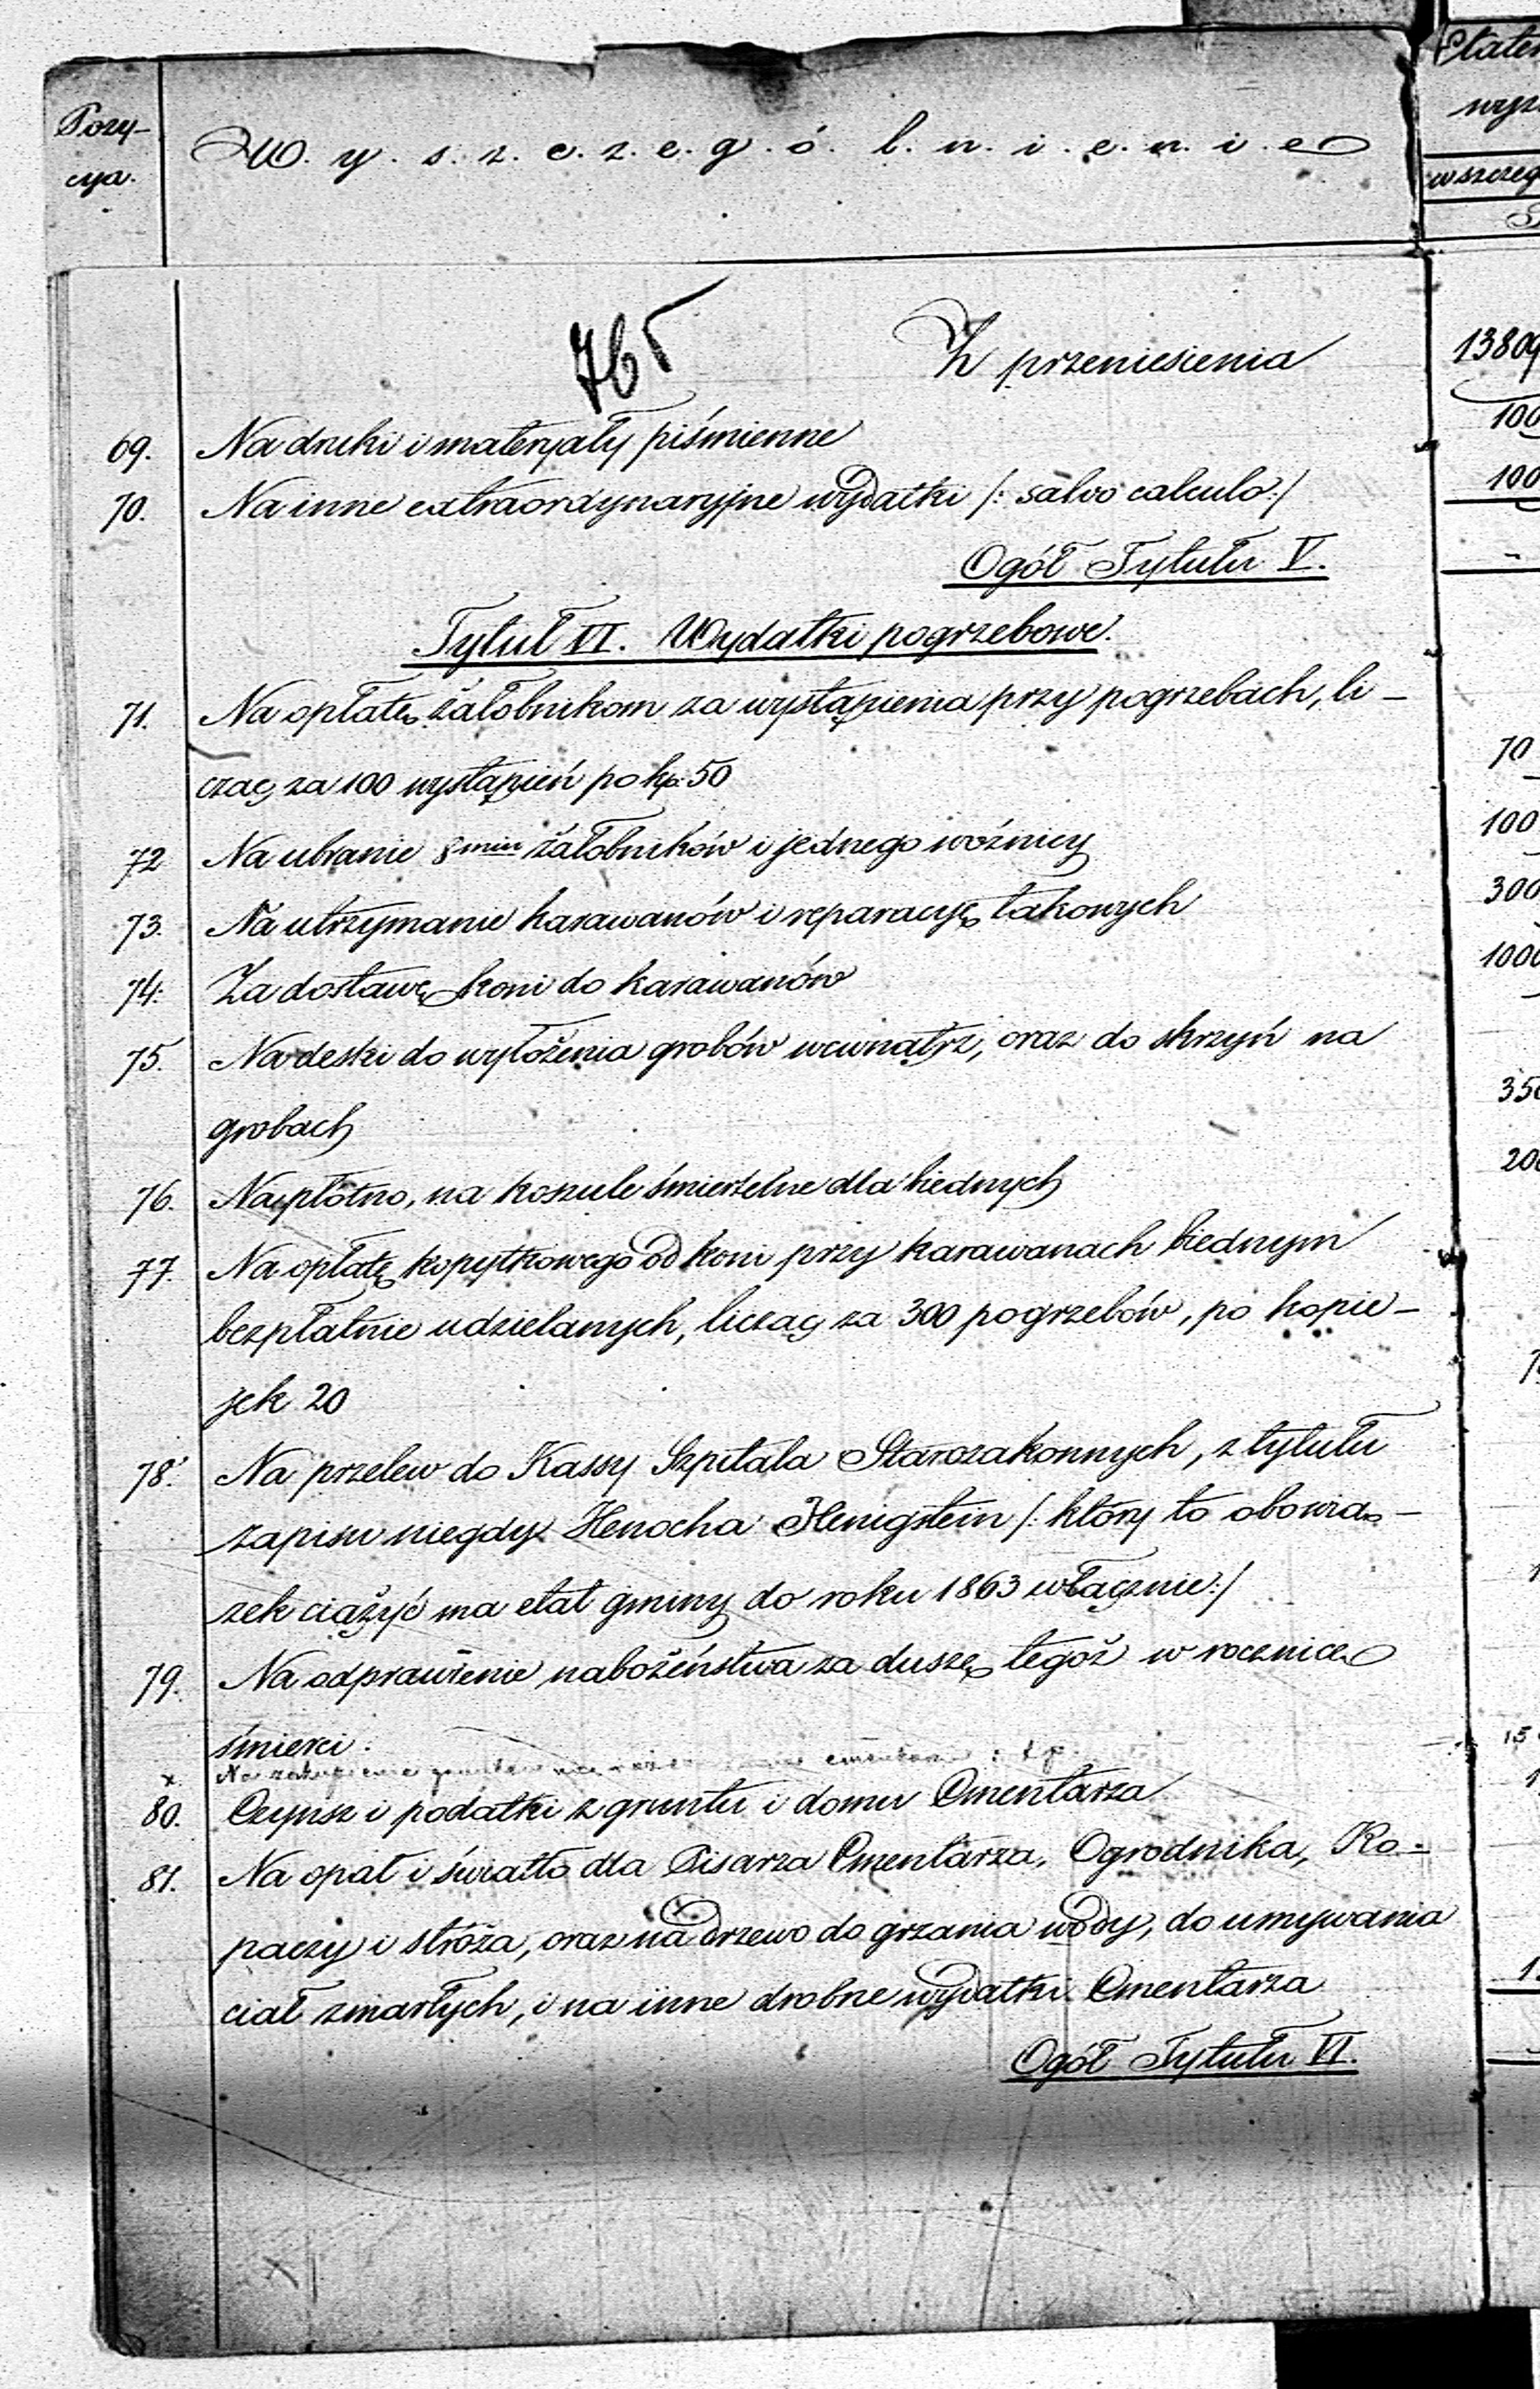 Pozy-
cya.
W. y. s. z. c. z. e. g. ó. l. n. i. e. n. i. e
wszczeg
765
Z przeniesienia
13809
69. Na druki i materyały piśmienne
100
70. Na inne extraordynaryjne wydatki /: salvo calculo :/
100
Ogół Tytułu V.
Tytuł VI. Wydatki pogrzebowe.
71. Na opłatę żałobnikom za wystąpienia przy pogrzebach, li-
cząc za 100 wystąpień po kp. 50
70
72 Na ubranie 8miu żałobników i jednego woźnicy
100
73. Na utrzymanie karawanów i reparacyę takowych
300
74. Za dostawę koni do karawanów
1000
75. Na deski do wyłożenia grobów wewnątrz, oraz do skrzyń na
grobach
350
76. Na płótno, na koszule śmiertelne dla biednych
200
77. Na opłatę kopytkowego od koni przy karawanach biednym
bezpłatnie udzielanych, licząc za 300 pogrzebów, po kopie-
jek 20
78. Na przelew do Kassy Szpitala Starozakonnych, z tytułu
zapisu niegdy Henocha Henigstein /: który to obowią-
zek ciążyć ma etat gminy do roku 1863 włącznie :/
79. Na odprawienie nabożeństwa za duszę tegoż w rocznicę
śmierci.
x. Na zakupienie
80. Czynsz i podatki z gruntu i domu Cmentarza
81. Na opał i światło dla Pisarza Cmentarza, Ogrodnika, Ko-
paczy i stróża, oraz na drzewo do grzania wody, do umywania
ciał zmarłych, i na inne drobne wydatki Cmentarza
Ogół Tytułu VI.